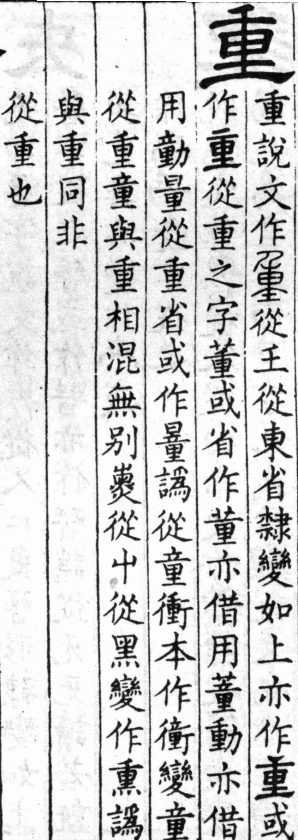 重
重說文作從王從東省隸變如上亦作重或
作重從重之字董或省作董亦借用蕫動亦借
用勭量從重省或作譌從童衝本作𧘂變童
從重童與重相混無別從屮從黑變作熏譌
與重同非
從重也